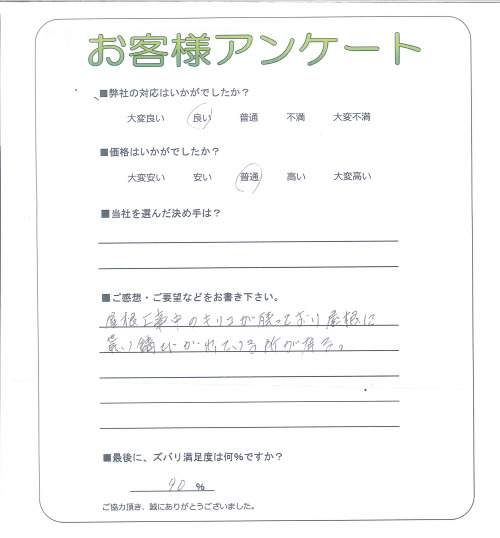 お客様アンケート
■弊社の対応はいかがでしたか？
大変良い 良い 普通 不満 大変不満
■価格はいかがでしたか？
大変安い 安い 普通 高い 大変高い
■当社を選んだ決め手は？
■ご感想・ご要望などをお書き下さい。
屋根工事中のキリコが残っており屋根に
錆びが出ている所が有る。
■最後に、ズバリ満足度は何％ですか？
90 ％
ご協力頂き、誠にありがとうございました。